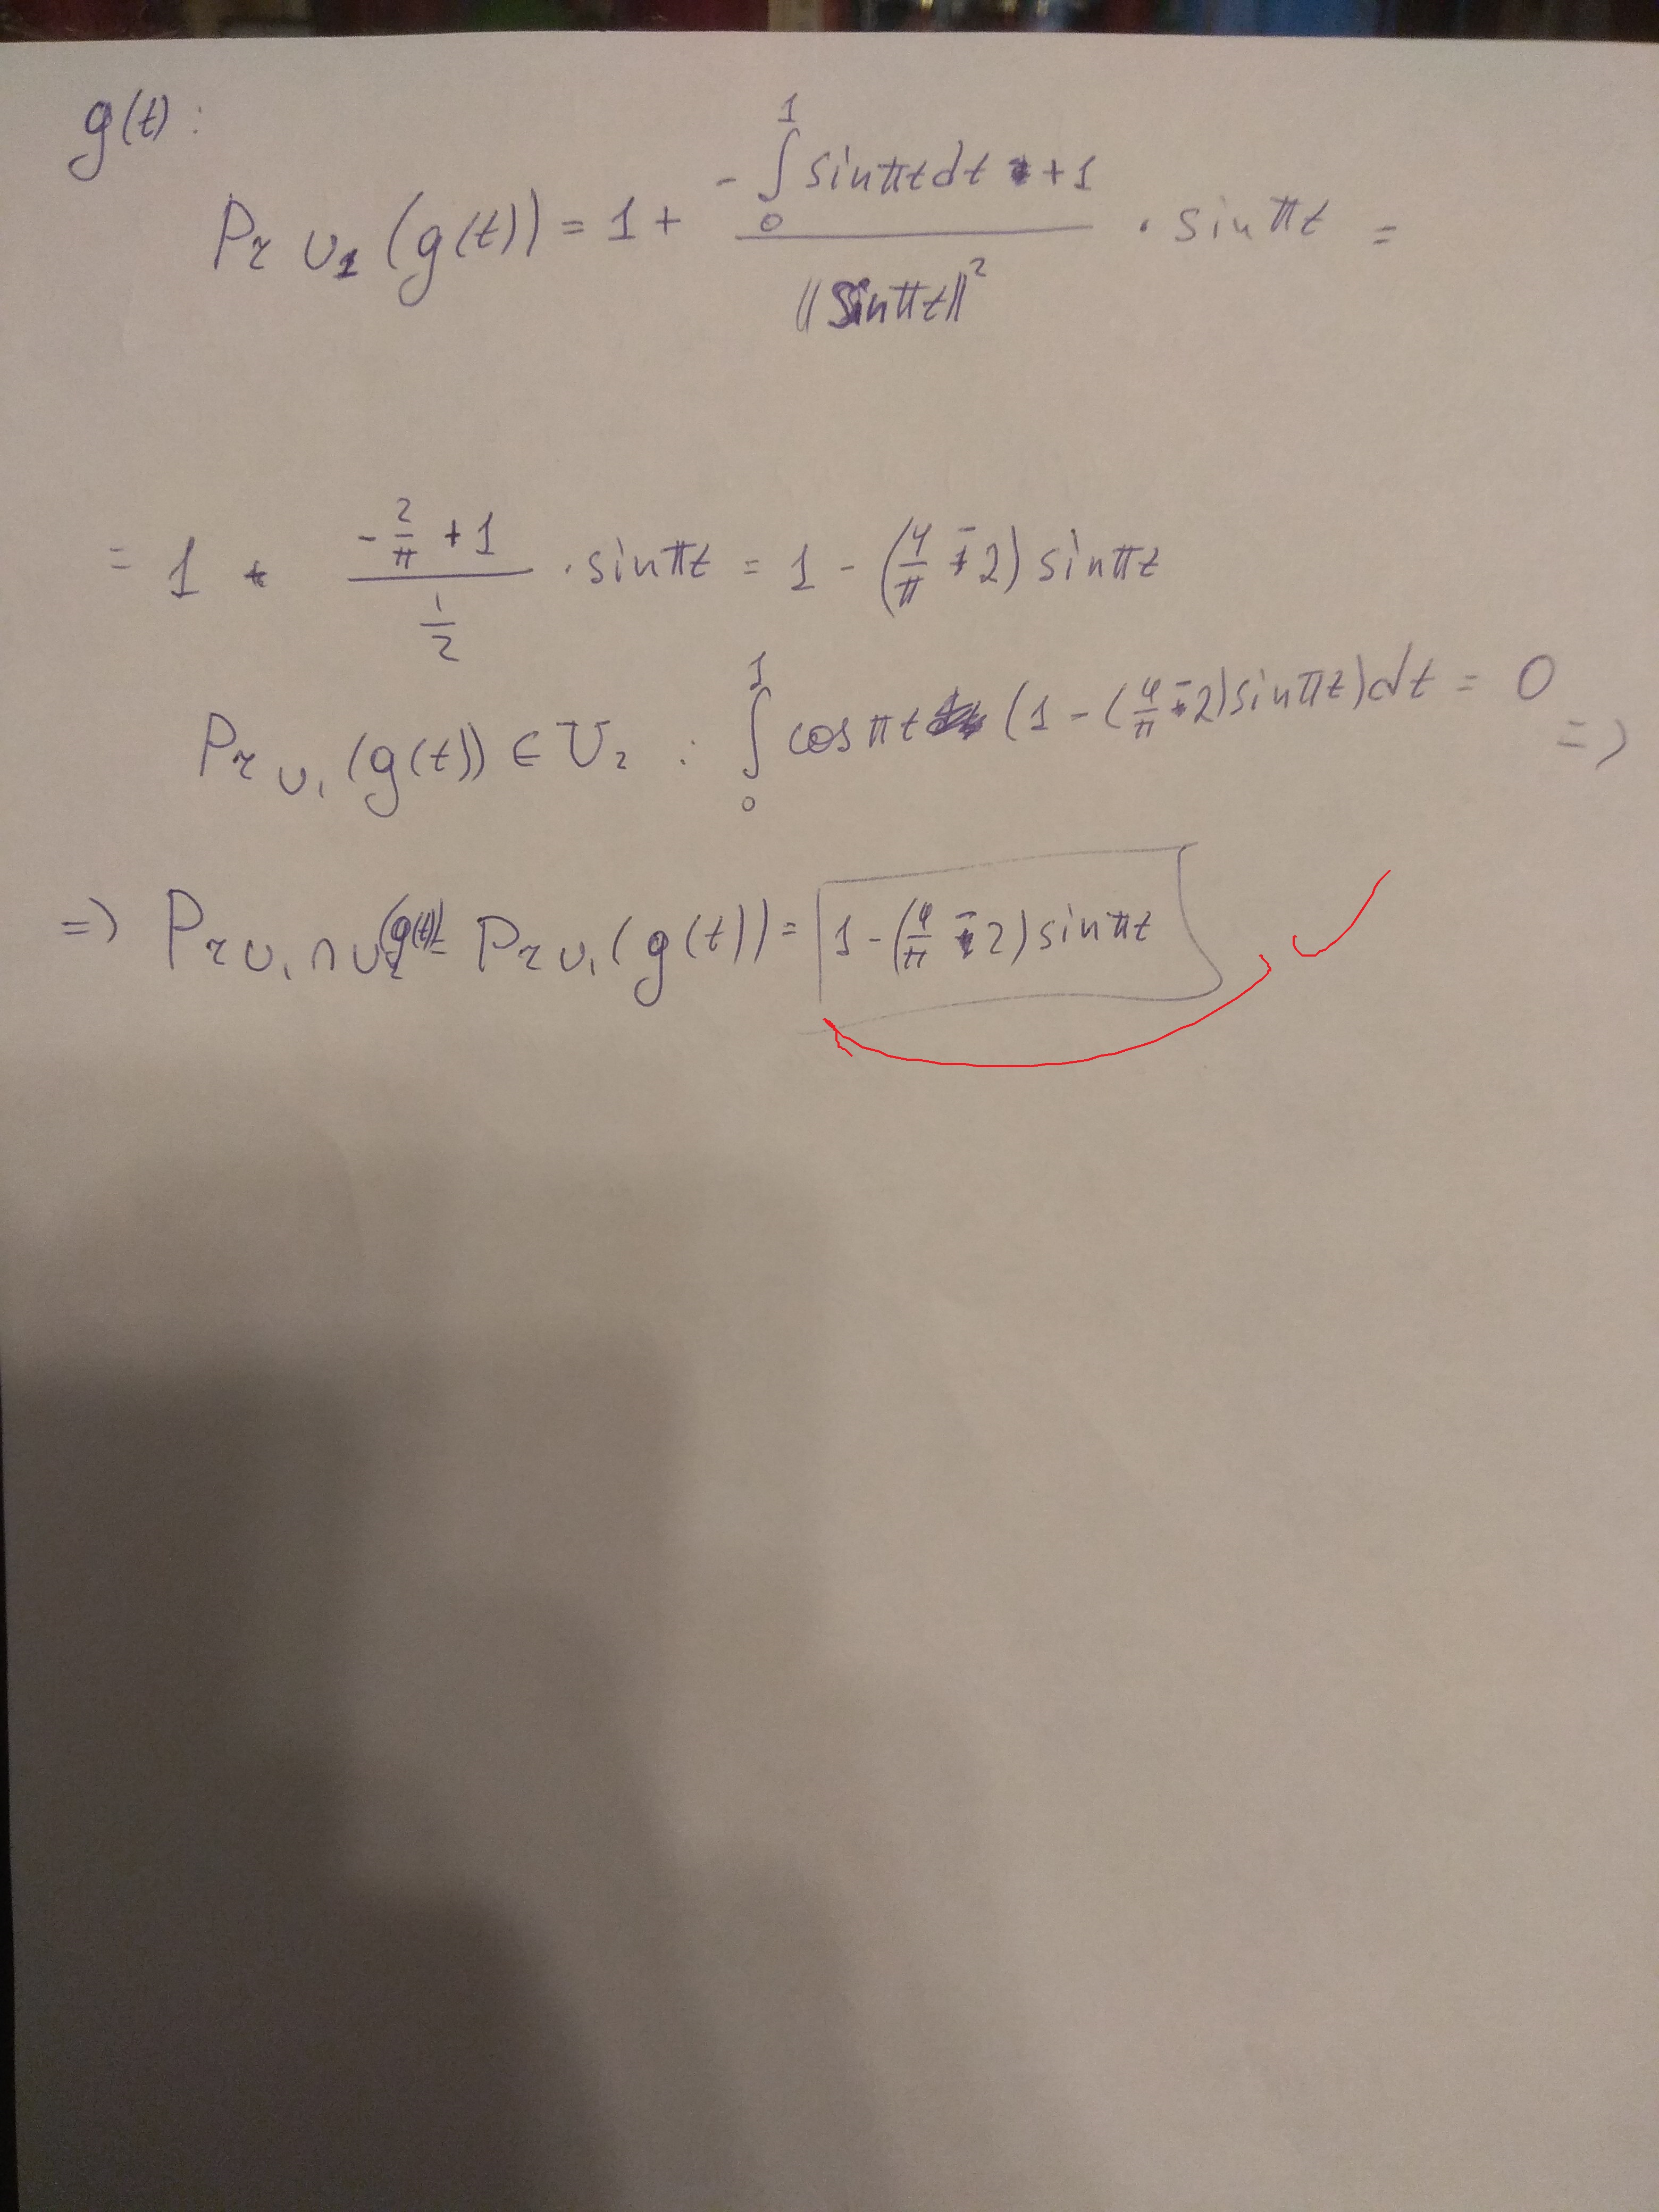 g(t):
Pr U₁ (g(t)) = 1 + (-∫₀¹ sinπt dt + 1) / ‖sinπt‖² · sinπt =
= 1 + (-2/π + 1) / (1/2) · sinπt = 1 - (4/π - 2) sinπt
Pr U₁ (g(t)) ∈ U₂ : ∫₀¹ cosπt (1 - (4/π - 2) sinπt) dt = 0 =>
=> Pr U₁ ∩ U₂ (g(t)) = Pr U₁ (g(t)) = 1 - (4/π - 2) sinπt ✓